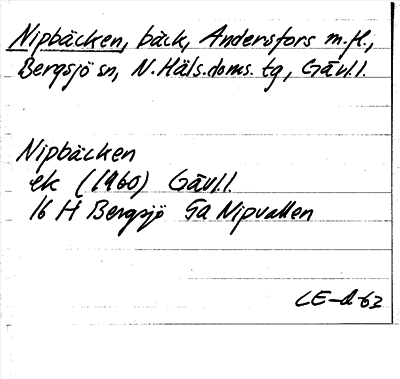 Nipbäcken, bäck, Andersfors m.fl.,
Bergsjö sn, N.Häls.doms. tg, Gävl.l.
Nipbäcken
ek (1960) Gävl.l.
16 H Bergsjö 5a Nipvallen
LE-d-62